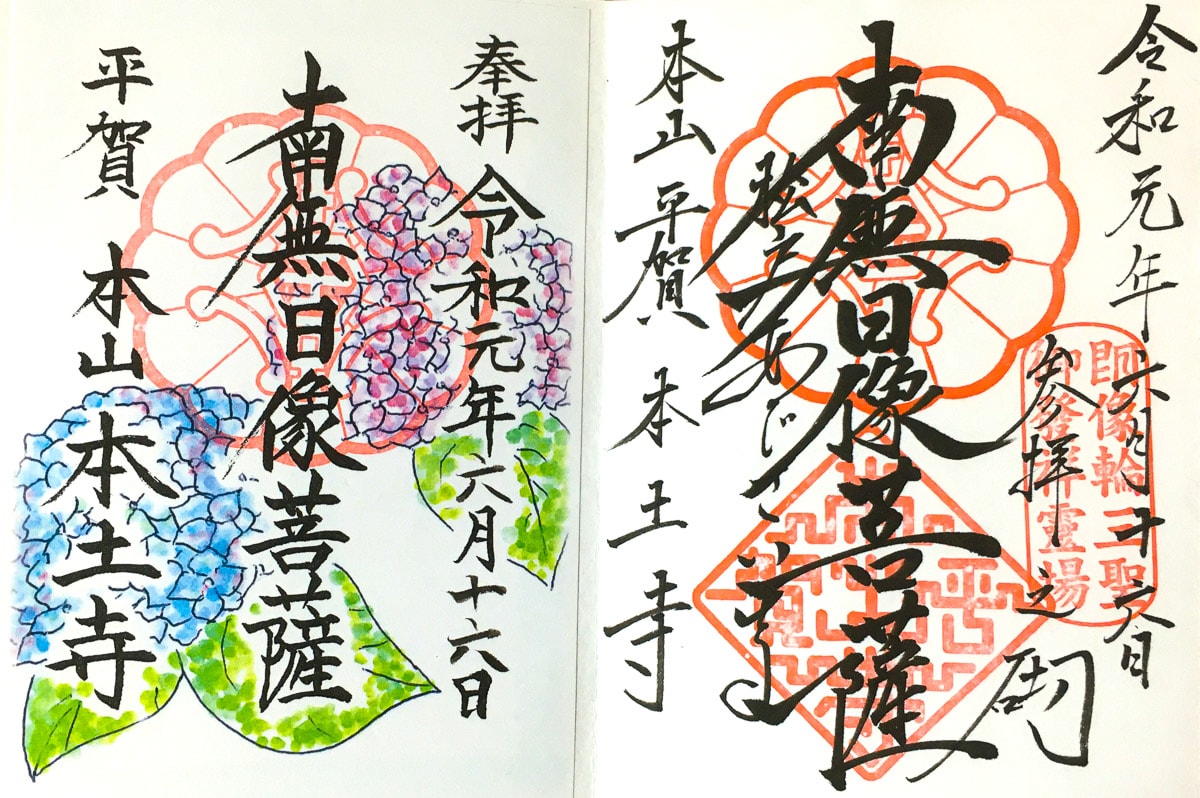 令和元年六月十六日
参拝之砌
師像輪三聖
御發祥靈場
南無日像菩薩
本山平賀 本土寺
奉拝 令和元年六月十六日
南無日像菩薩
平賀 本山 本土寺